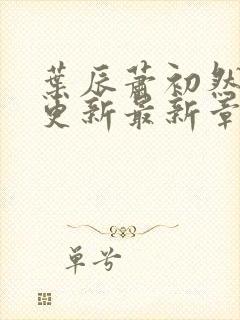 葉辰蕭初然
更新最新章
单兮